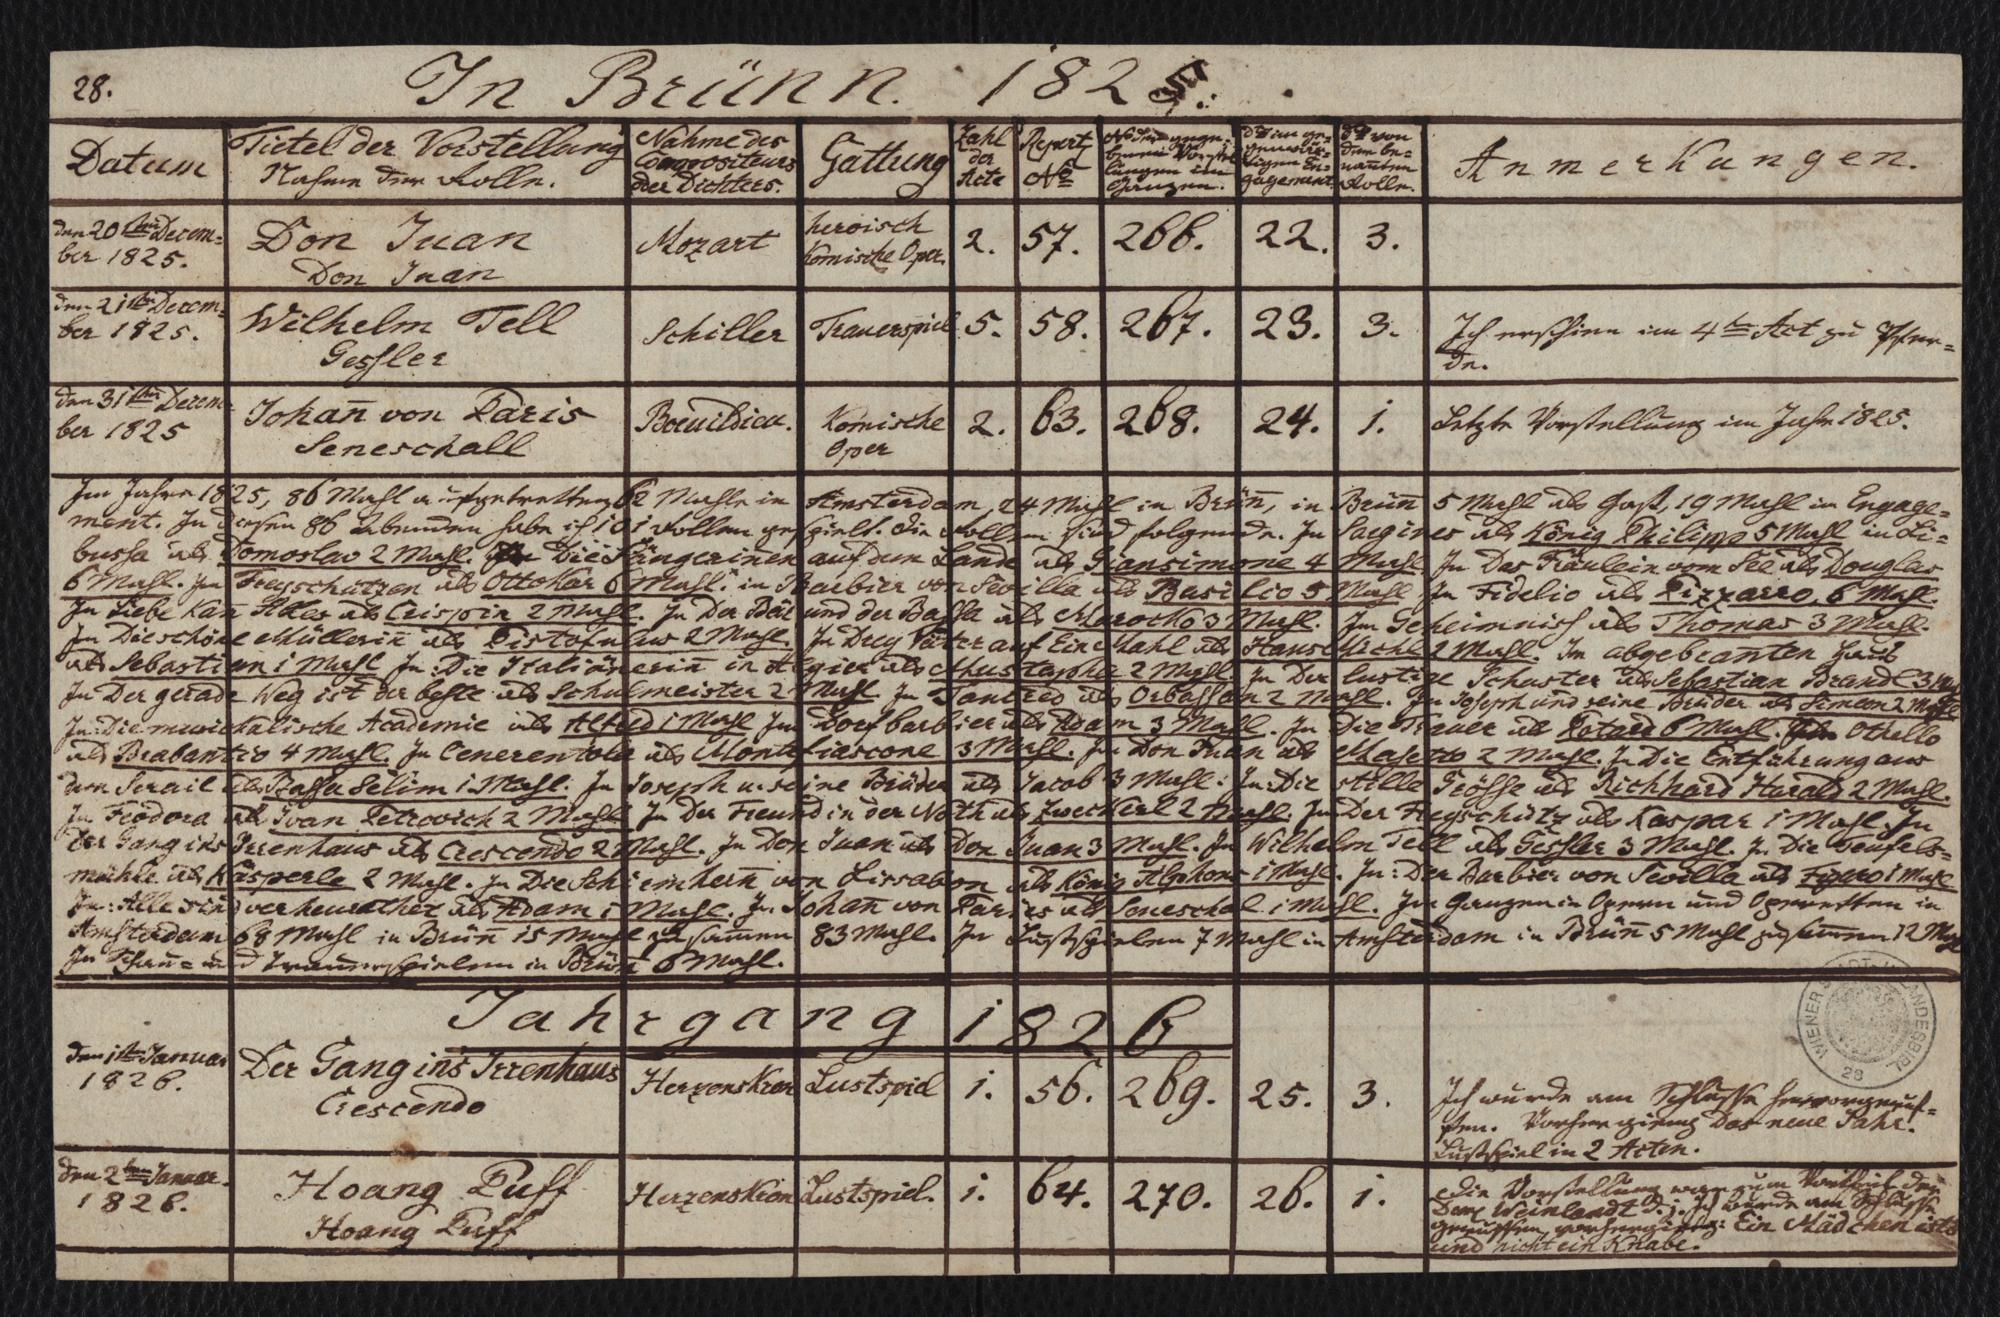 28.
In Brünn. 1825.
Datum
Tietel der Vorstellung
Nahme der Rolle.
Nahme des
Compositeurs
oder Dichters.
Gattung
Zahl
der
Acte
Repert
No
No der gege-
benen Vorstel
lungen im
Ganzen.
dto im ge-
genwär-
tigen En-
gagement
dto von
der be-
nanten
Rolle.
Anmerkungen.
den 20ten Decem-
ber 1825.
Don Juan
Don Juan
Mozart
heroisch
Komische Oper.
2.
57.
266.
22.
3.
den 21ten Decem-
ber 1825.
Wilhelm Tell
Gessler
Schiller
Trauerspiel
5.
58.
267.
23.
3.
Ich erschien im 4ten Act zu Pfer-
de.
den 31ten Decem-
ber 1825
Johan̄ von Paris
Seneschall
Boeuildieu.
Komische
Oper
2.
63.
268.
24.
1.
Letzte Vorstellung im Jahr 1825.
Im Jahre 1825, 86 Mahl aufgetretten, 62 Mahle in Amsterdam, 24 Mahl in Brün̄, in Brün̄ 5 Mahl als Gast, 19 Mahl im Engage-
ment. In diesen 86 Abenden habe ich 101 Rollen gespielt. Die Rollen sind folgende. In Sargines als König Philipp 5 Mahl in Li-
bussa als Domoslav 2 Mahl. Die Sängerinen auf dem Lande als Giansimone 4 Mahl. In Das Fräulein vom See als Douglas
6 Mahl. In Freyschützen als Ottokar 6 Mahl. in Barbier von Sevilla als Basilio 5 Mahl In Fidelio als Pizzarro. 6 Mahl.
In Liebe kan̄ Alles als Crispin 2 Mahl. In Der Bär und der Bassa als Marocko 3 Mahl. Im Geheimniss als Thomas 3 Mahl.
In Die schöne Müllerin̄ als Pistofolus 2 Mahl. In Drey Väter auf Ein Mahl als Hans Michl 2 Mahl. In abgebranten Haus
als Sebastian 1 Mahl In: Die Italiänerin̄ in Algier als Mustapha 2 Mahl. In Der lustige Schuster als Sebastian Brandl 3 Mahl
In Der gerade Weg ist der beste als Schulmeister 2 Mahl In Tancred als Orbassan 2 Mahl. In Joseph und seine Brüder als Simeon 2 Mahl
In: Die musickalische Academie als Alfred 1 Mahl Im Dorfbarbier als Adam 3 Mahl. In Die Trauer als Rotard 6 Mahl. Othello
als Brabantio 4 Mahl. In Cenerentola als Montefiascone 3 Mahl. In Don Juan als Masetto 2 Mahl. In Die Entführung aus
dem Serail als Bassa Selim 1 Mahl. In Joseph u. seine Brüder als Jacob 3 Mahl: In: Die stille Grösse als Richhard Harald 2 Mahl.
In Feodora als Ivan Petrovich 2 Mahl In Der Freund in der Noth als Zweckerl 2 Mahl. In Der Freyschütz als Kaspar 1 Mahl. In
Der Gang ins Irrenhaus als Crescendo 2 Mahl. In Don Juan als Don Juan 3 Mahl. In Wilhelm Tell als Gessler 3 Mahl. In Die Teufels-
mühle als Käsperle 2 Mahl. In Die Schiemherrn̄ von Lissabon als König Alphons 1 Mahl. In: Der Barbier von Sevilla als Figaro 1 Mahl
In: Alle sind verheurathet als Adam 1 Mahl. In Johan̄ von Paris als Seneschal. 1 Mahl. Im Ganzen in Opern und Operetten in
Amsterdam 68 Mahl in Brün̄ 15 Mahl zusam̄en 83 Mahl. In Lustspielen 7 Mahl in Amsterdam in Brün̄ 5 Mahl zusam̄en 12 Mahl
In Schau- und Trauerspielen in Brün̄ 6 Mahl.
Jahrgang 1826
den 1ten Januar
1826.
Der Gang ins Irrenhaus
Crescendo
Herzenskron
Lustspiel
1.
56.
269.
25.
3.
Ich wurde am Schlusse hervorgeruf-
fen. Vorher gieng Das neue Jahr.
Lustspiel in 2 Acten.
den 2ten Januar.
1826.
Hoang Puff
Hoang Puff
Herzenskron
Lustspiel.
1.
64.
270.
26.
1.
Die Vorstellung war zum Vortheil der
Dem Weinlandt d. j. Ich wurde am Schlusse
geruffen, vorher gieng: Ein Mädchen ists
und nicht ein Knabe.
WIENER STADT- U. LANDESBIBL.
28